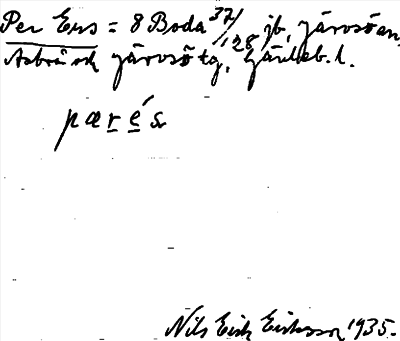 Per Ers = 8 Boda 37/128 jb, Järvsö sn,
Järvsö tg, Gävleb. l.
pærés
Nils Erik Eriksson 1935.